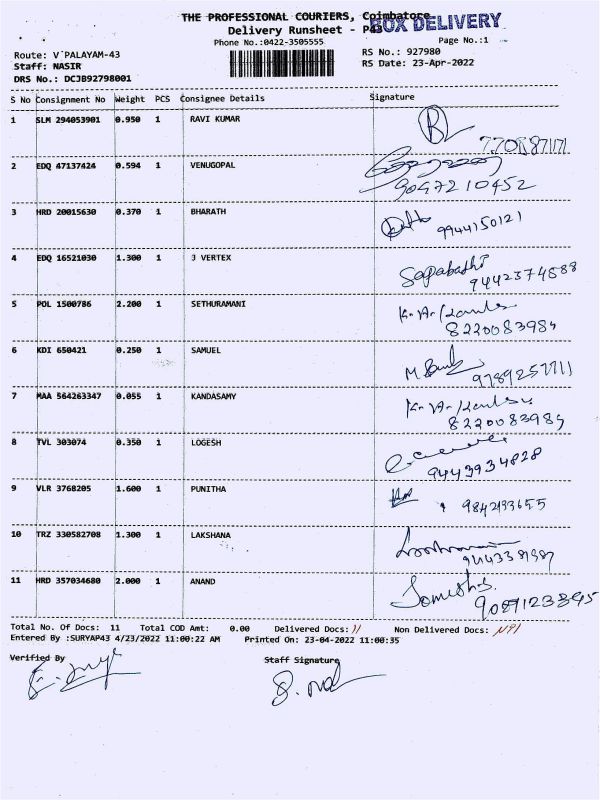 THE PROFESSIONAL COURIERS, Coimbatore
BOX DELIVERY
Delivery Runsheet - P43
Phone No.:0422-3505555
Page No.:1
Route: V PALAYAM-43
RS No.: 927980
Staff: NASIR
RS Date: 23-Apr-2022
DRS No.: DCJB92798001
S No Consignment No Weight PCS Consignee Details Signature
1 SLM 294053901 0.950 1 RAVI KUMAR
2 EDQ 47137424 0.594 1 VENUGOPAL
9047210452
3 HRD 20015630 0.370 1 BHARATH
9944150121
4 EDQ 16521030 1.300 1 J VERTEX
Sapabathi
9442374588
5 POL 1500786 2.200 1 SETHURAMANI
8220083985
6 KDI 650421 0.250 1 SAMUEL
9789257711
7 MAA 564263347 0.055 1 KANDASAMY
8220083985
8 TVL 303074 0.350 1 LOGESH
9443934828
9 VLR 3768205 1.600 1 PUNITHA
9842193655
10 TRZ 330582708 1.300 1 LAKSHANA
11 HRD 357034680 2.000 1 ANAND
Total No. Of Docs: 11 Total COD Amt: 0.00 Delivered Docs: 11 Non Delivered Docs:
Entered By :SURYAP43 4/23/2022 11:00:22 AM Printed On: 23-04-2022 11:00:35
Verified By Staff Signature